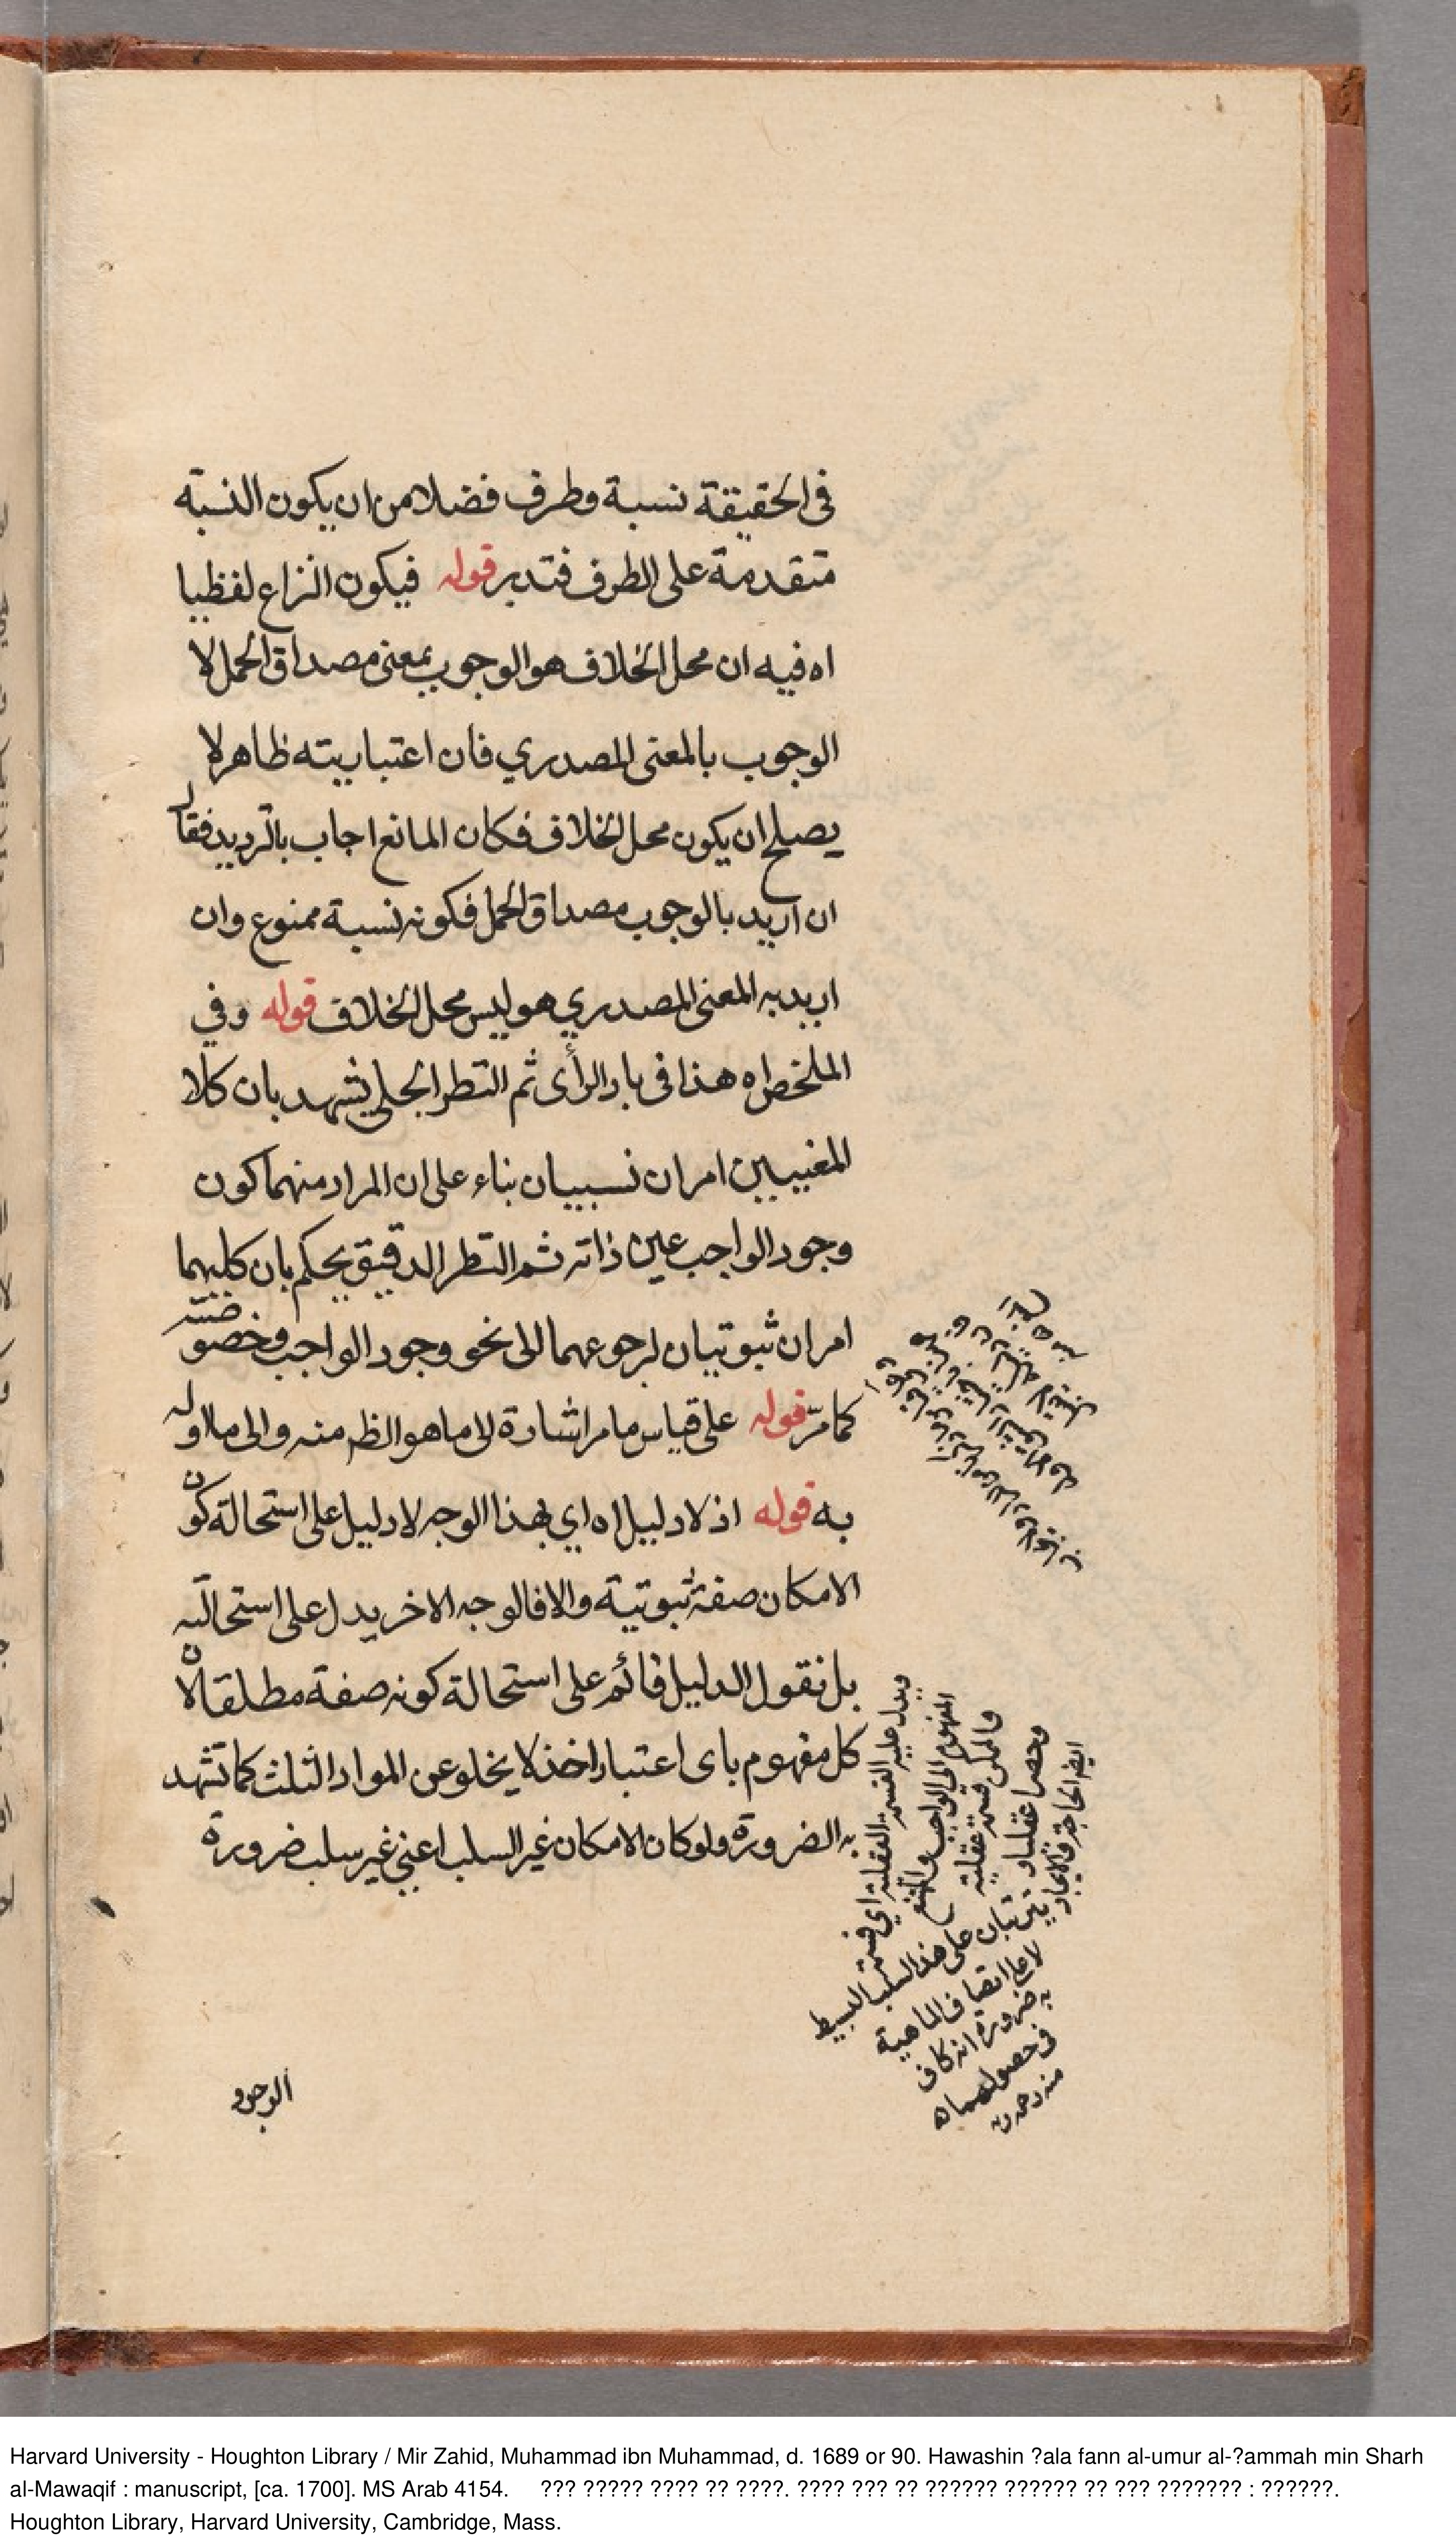 في الحقيقة نسبة وطرف فضلا من ان يكون النسبة
متقدمة على الطرف فتدبر قوله فيكون النزاع لفظيا
اه فيه ان محل الخلاف هو الوجوب بمعنى مصداق الحمل لا
الوجوب بالمعنى المصدري فان اعتباريته ظاهر لا
يصلح ان يكون محل الخلاف فكان المانع اجاب بالترديد فقال
ان اريد بالوجوب مصداق الحمل فكونه نسبة ممنوع وان
اريد به المعنى المصدري هو ليس محل الخلاف قوله وفي
الملخص اه هذا في باد الرأى ثم النظر الجلي يشهد بان كلا
المغيبين امران نسبيان بناء على ان المراد منهما كون
وجود الواجب عين ذاته ثم النظر الدقيق يحكم بان كليهما
امران ثبوتيان لرجوعهما الى نحو وجود الواجب وخصوصيته
كما مرّ قوله على قياس ما مر اشارة لى ما هو الظم منه والى ما اوله
به قوله اذ لا دليل اه اي بهذا الوجه لا دليل على استحالة كون
الامكان صفة ثبوتية والا فالوجه الاخر يدل على استحالته
بل نقول الدليل قائم على استحالة كونه صفة مطلقا لان
كل مفهوم باى اعتبار اخذ لا يخلو عن المواد الثلث كما تشهد
به الضرورة ولو كان الامكان غير السلب اعني غير سلب ضرورة
ويدل عليه القسمة العقلية اي قسمة
المفهوم الى الواجب والممتنع
والممكن قسمة عقلية
وحصرا عقليا
على هذا السلب البسيط
لا على اتصاف الماهية
به ضرورة انه كاف
في حصولهما اه
منه رحمه
الوجود
Harvard University - Houghton Library / Mir Zahid, Muhammad ibn Muhammad, d. 1689 or 90. Hawashin ?ala fann al-umur al-?ammah min Sharh
al-Mawaqif : manuscript, [ca. 1700]. MS Arab 4154. ??? ????? ???? ?? ????. ???? ??? ?? ?????? ?????? ?? ??? ??????? : ??????.
Houghton Library, Harvard University, Cambridge, Mass.